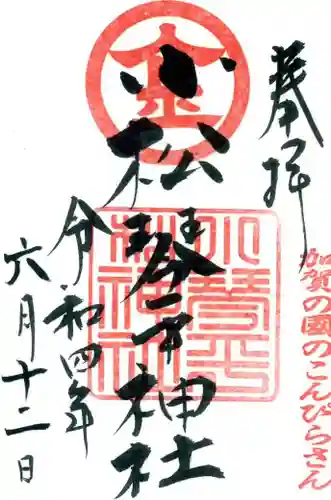 奉拝
加賀の國のこんぴらさん
金
小松琴平神社
令和四年
六月十二日